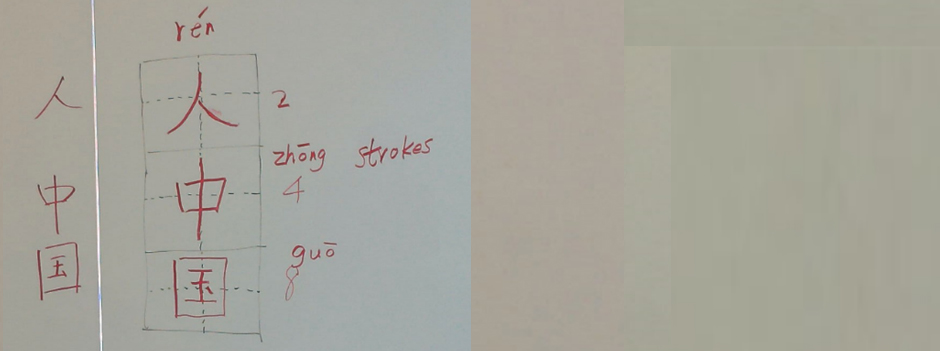 rén
人 人 2
zhōng strokes
中 中 4
guō
国 国 8